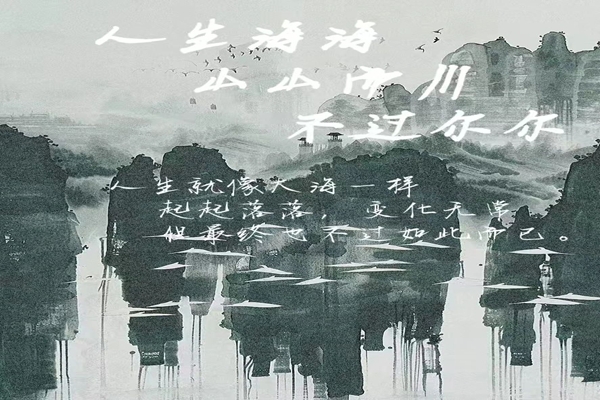 人生海海
山山而川
不过尔尔
人生就像大海一样
起起落落，变化无常
但最终也不过如此而已。